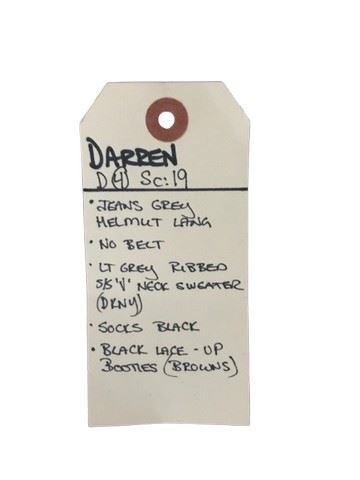 DARREN
D④ Sc:19
• JEANS GREY
HELMUT LANG
• NO BELT
• LT GREY RIBBED
S/S 'V' NECK SWEATER
(DKNY)
• SOCKS BLACK
• BLACK LACE-UP
BOOTIES (BROWNS)